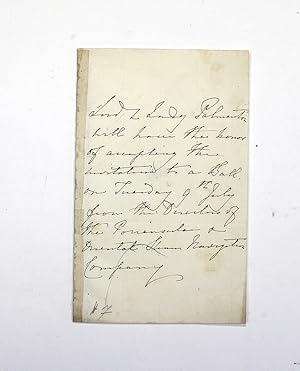 Lord & Lady Palmerston
will have the honor
of accepting the
invitation to a Ball
on Tuesday 9th July
from the Directors of
the Peninsula &
Oriental Steam Navigation
Company